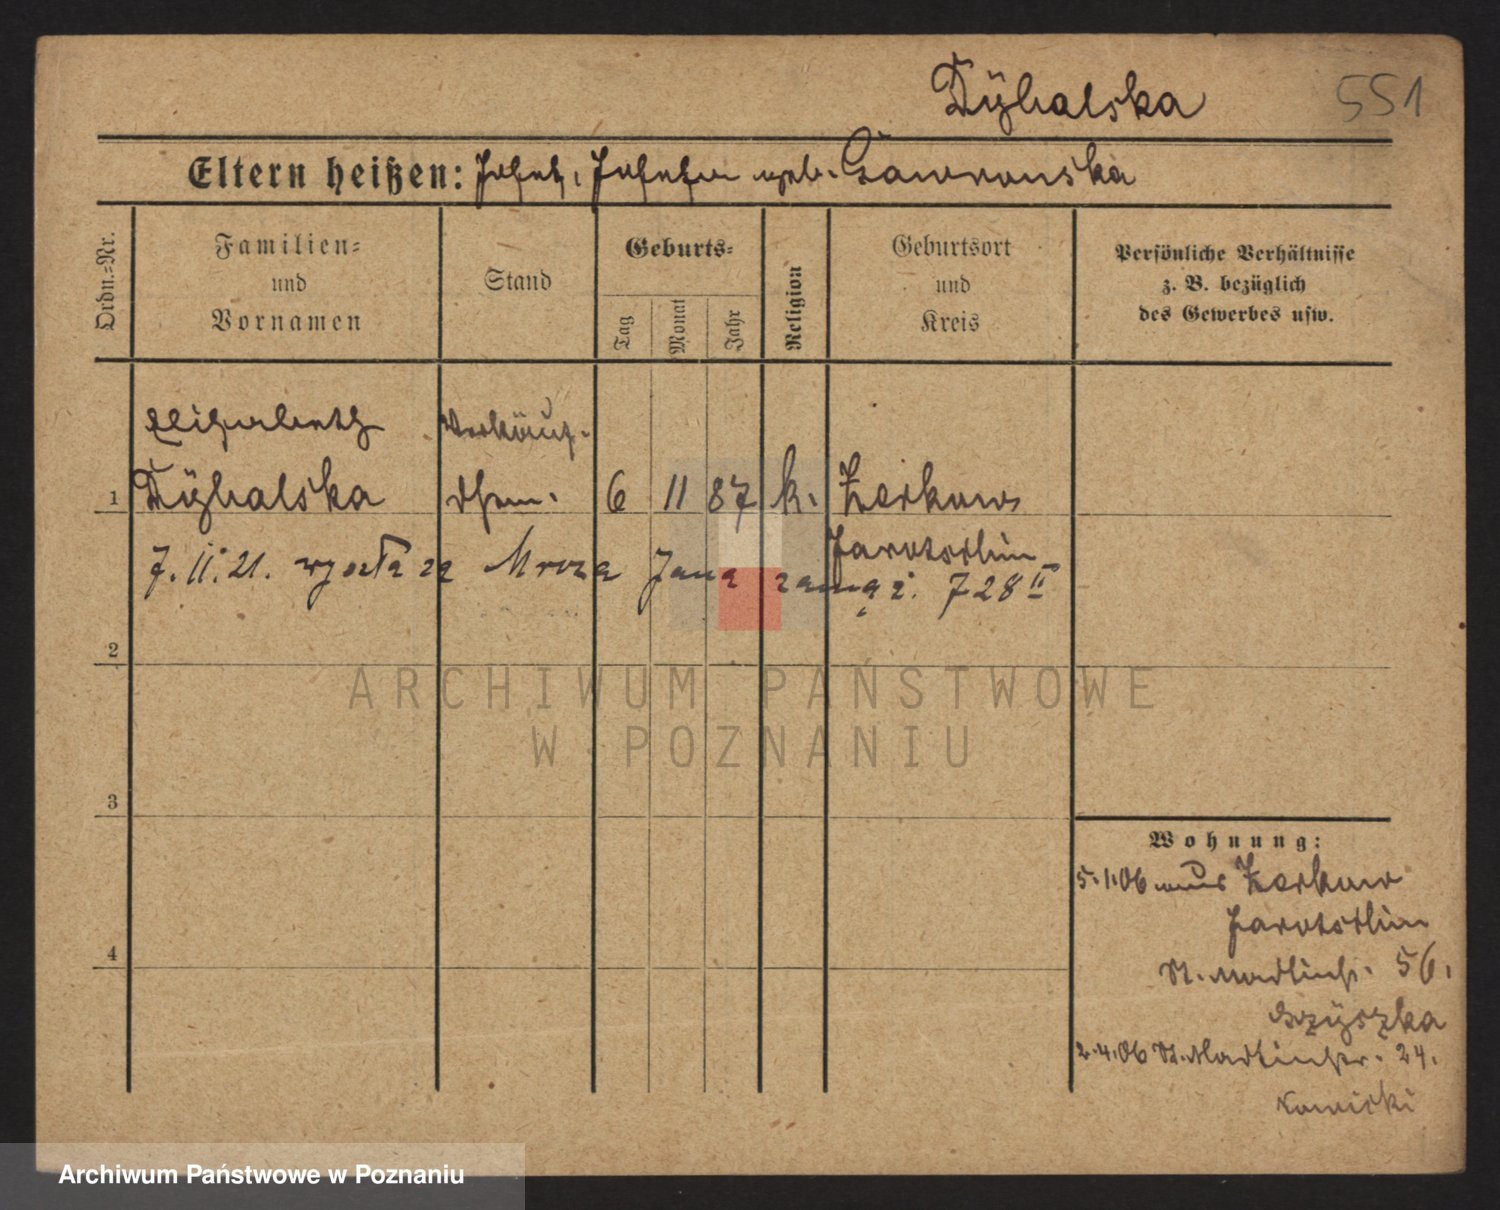 Dÿbalska
551
Eltern heißen: Josef, Josefa geb. Gawronska
Ordn.=Nr.
Familien=
und
Vornamen
Stand
Geburts=
Tag
Monat
Jahr
Religion
Geburtsort
und
Kreis
Persönliche Verhältnisse
z. B. bezüglich
des Gewerbes usw.
Elisabeth
Verkäuf-
1
Dÿbalska
6
11
87
k.
Zerkow
Jarotschin
7.11.21. wyszła za Mroza Jana zamąż. 728 II
2
ARCHIWUM PAŃSTWOWE
W POZNANIU
3
Wohnung:
5.1.06 aus Zerkow
Jarotschin
4
St. Martinstr. 56.
2.4.06 St. Martinstr. 24.
Archiwum Państwowe w Poznaniu